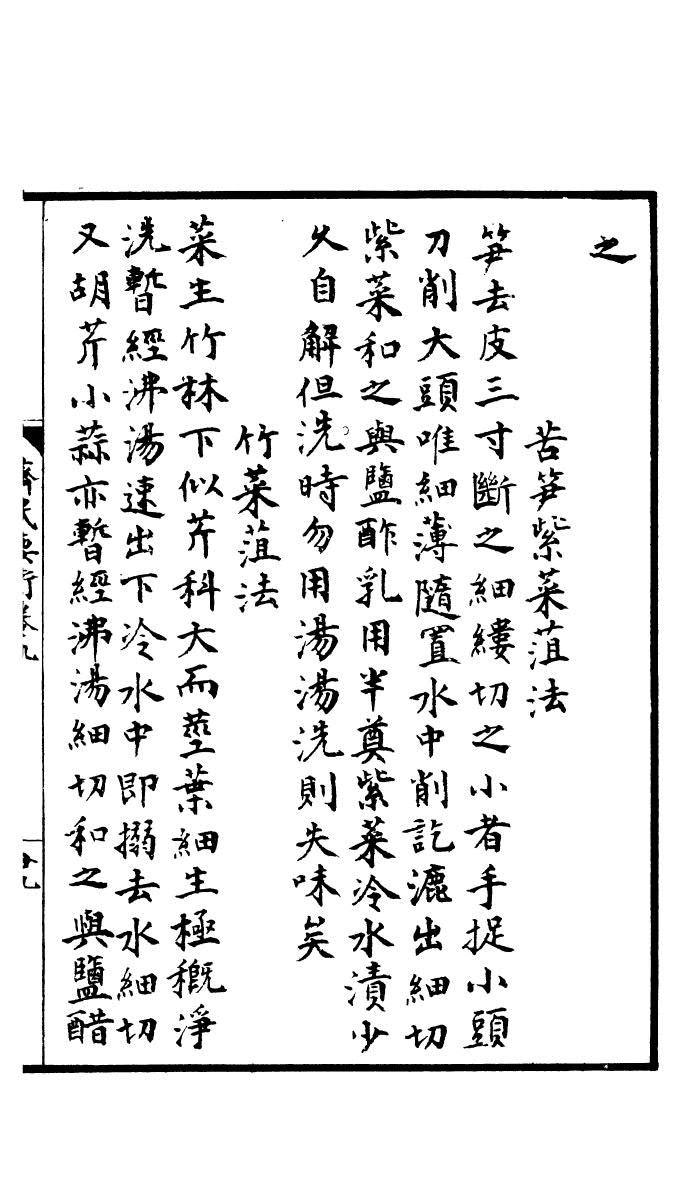 之
苦笋紫菜菹法
笋去皮三寸斷之細縷切之小者手捉小頭
刀削大頭唯細薄隨置水中削訖漉出細切
紫菜和之與鹽酢乳用半奠紫菜冷水漬少
久自解但洗時勿用湯湯洗則失味矣
竹菜菹法
菜生竹林下似芹科大而莖葉細生極穊淨
洗暫經沸湯速出下冷水中即搦去水細切
又胡芹小蒜亦暫經沸湯細切和之與鹽醋
齊民要術卷九